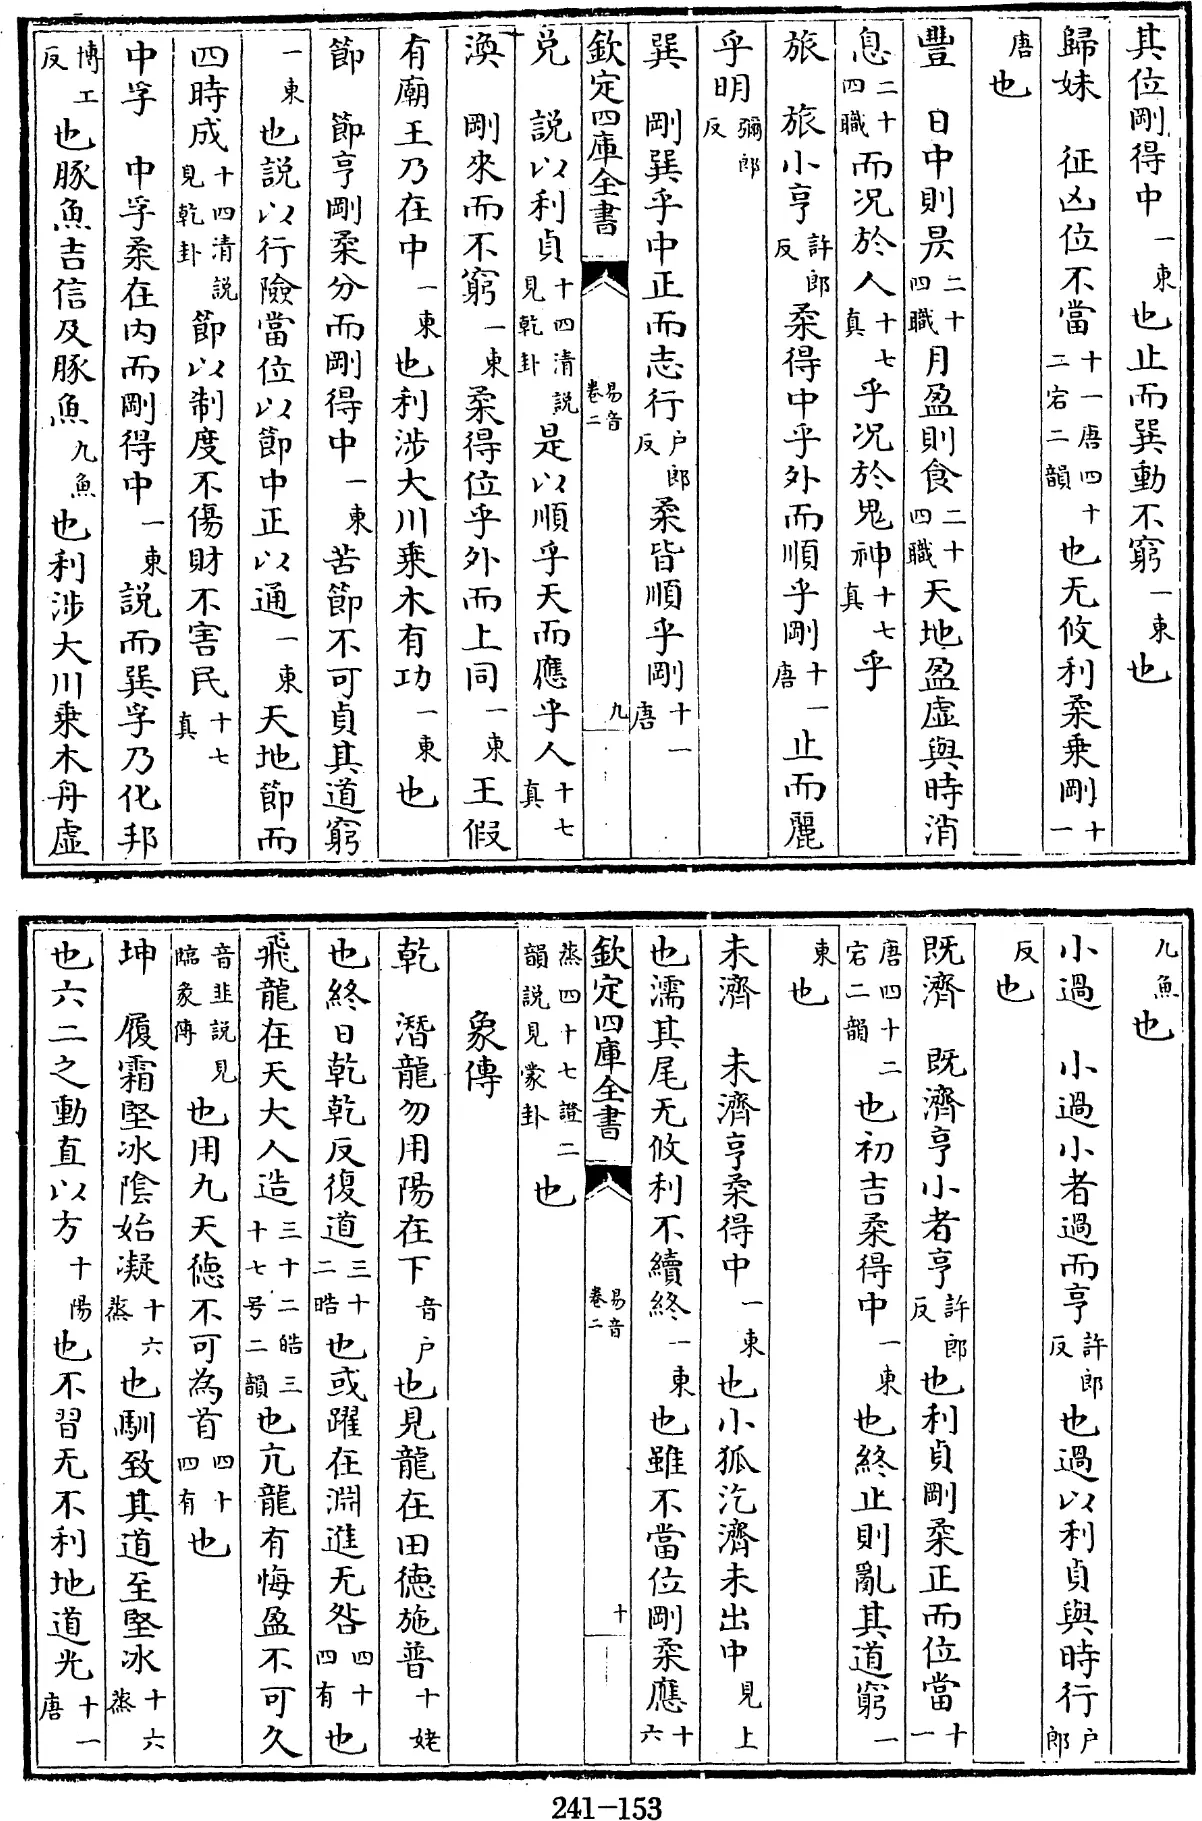 其位剛得中一東也止而巽動不窮一東也
歸妹　征凶位不當十一唐四十二宕二韻也无攸利柔乗剛十一
唐也
豐　日中則昃二十四職月盈則食二十四職天地盈虛與時消
息二十四職而況於人十七真乎況於鬼神十七真乎
旅　旅小亨許郎反柔得中乎外而順乎剛十一唐止而麗
乎明彌郎反
巽　剛巽乎中正而志行户郎反柔皆順乎剛十一唐
欽定四庫全書　易音卷二　九
兌　説以利貞十四清説見乾卦是以順乎天而應乎人十七真
渙　剛來而不窮一東柔得位乎外而上同一東王假
有廟王乃在中一東也利涉大川乗木有功一東也
節　節亨剛柔分而剛得中一東苦節不可貞其道窮
一東也説以行險當位以節中正以通一東天地節而
四時成十四清説見乾卦節以制度不傷財不害民十七真
中孚　中孚柔在内而剛得中一東説而巽孚乃化邦
博工反也豚魚吉信及豚魚九魚也利涉大川乗木舟虛
九魚也
小過　小過小者過而亨許郎反也過以利貞與時行户郎
反也
既濟　既濟亨小者亨許郎反也利貞剛柔正而位當十一
唐四十二宕二韻也初吉柔得中一東也終止則亂其道窮一
東也
未濟　未濟亨柔得中一東也小狐汔濟未出中見上
也濡其尾无攸利不續終一東也雖不當位剛柔應十六
欽定四庫全書　易音卷二　十
蒸四十七證二韻説見蒙卦也
象傳
乾　潛龍勿用陽在下音户也見龍在田德施普十姥
也終日乾乾反復道三十二晧也或躍在淵進无咎四十四有也
飛龍在天大人造三十二晧三十七号二韻也亢龍有悔盈不可久
音韭説見臨彖傳也用九天德不可為首四十四有也
坤　履霜堅冰陰始凝十六蒸也馴致其道至堅冰十六蒸
也六二之動直以方十陽也不習无不利地道光十一唐
241-153